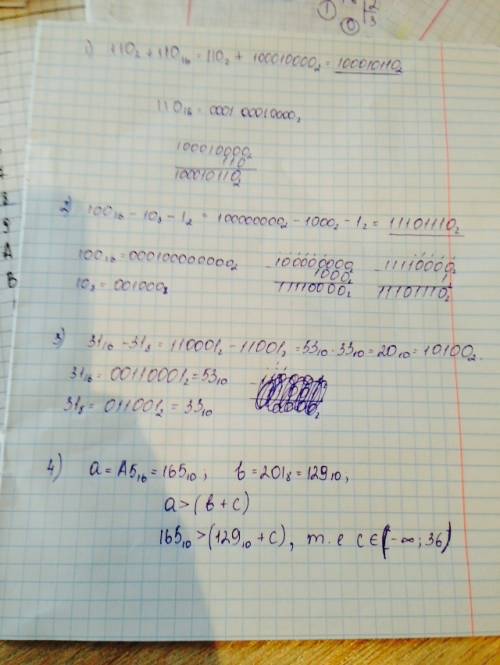 1) 110₂ + 110₁₆ = 110₂ + 100010000₂ = 100010110₂
110₁₆ = 0001 00010000₂
100010000₂
110
100010110₂
2) 100₁₆ - 10₈ - 1₂ = 100000000₂ - 1000₂ - 1₂ = 11101110₂
100₁₆ = 000100000000₂
10₈ = 001000₂
- 100000000₂
1000₂
11110000₂
- 11110000₂
1₂
11101110₂
3) 31₁₆ - 31₈ = 110001₂ - 11001₂ = 53₁₀ - 33₁₀ = 20₁₀ = 10100₂.
31₁₆ = 00110001₂ = 53₁₀
31₈ = 011001₂ = 33₁₀
4) a = A5₁₆ = 165₁₀, b = 201₈ = 129₁₀,
a > (b + c)
165₁₀ > (129₁₀ + c), т. е c ∈ (-∞; 36)
A
B